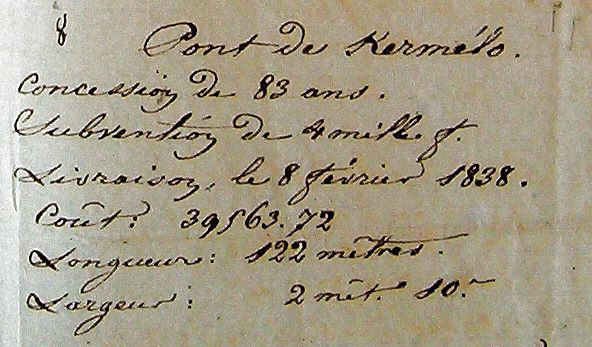 8
Pont de Kermélo.
Concession de 83 ans.
Subvention de 4 mille f.
Livraison, le 8 février 1838.
Coût: 39563.72
Longueur: 122 mètres.
Largeur: 2 mèt. 10.